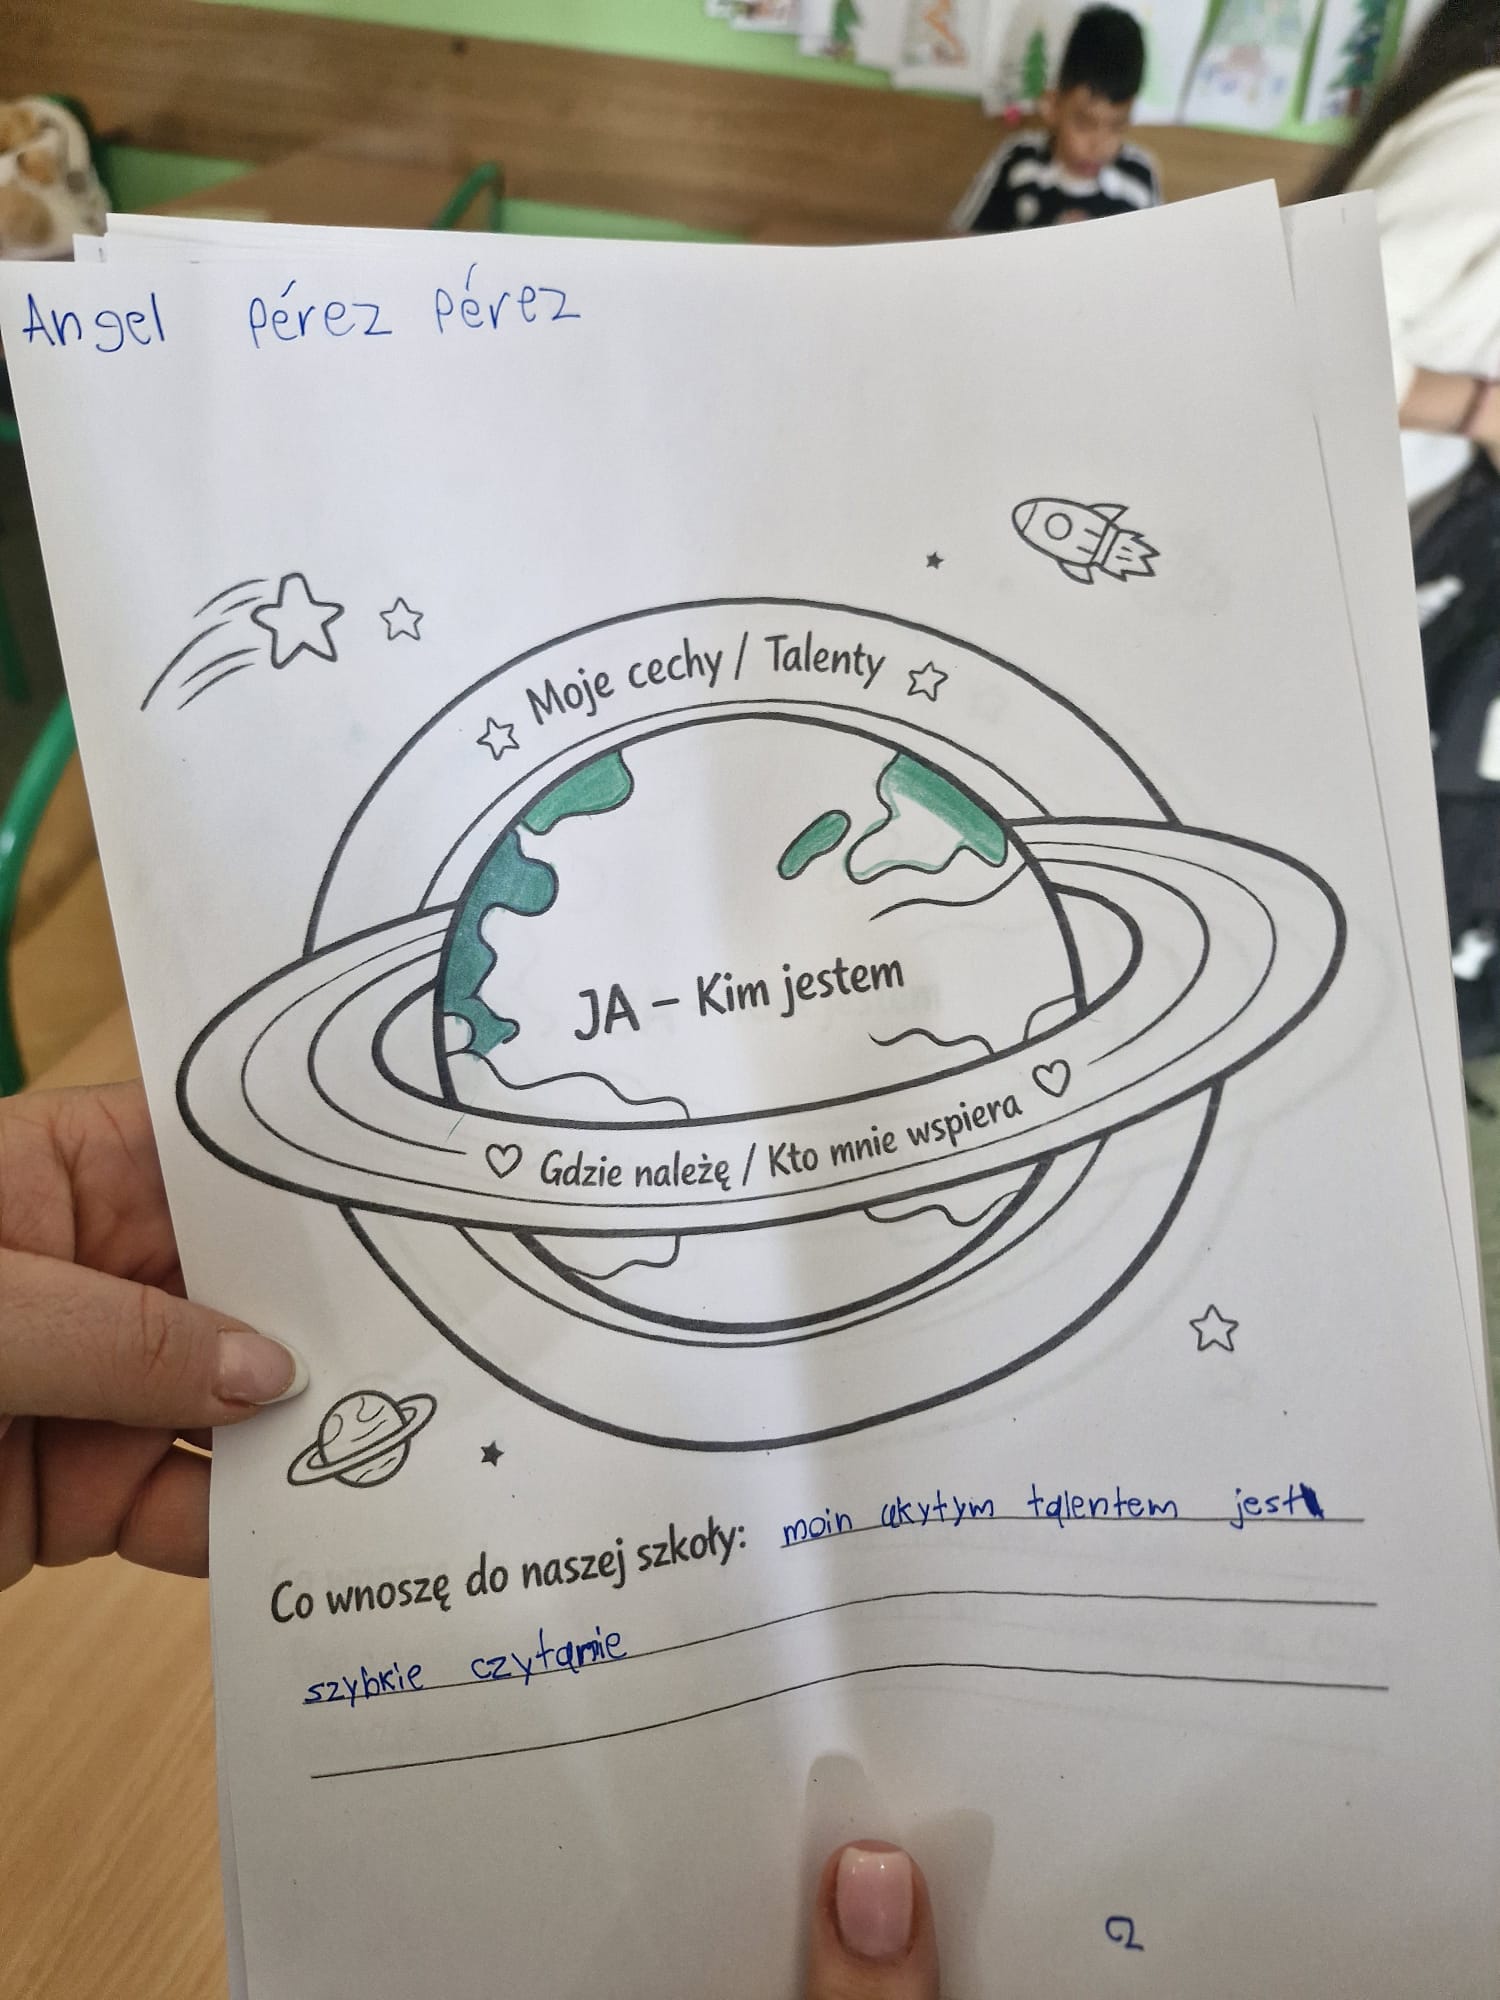 Angel Pérez Pérez
Moje cechy / Talenty
JA – Kim jestem
Gdzie należę / Kto mnie wspiera
Co wnoszę do naszej szkoły: moin ukytym talentem jest
szybkie czytanie
2